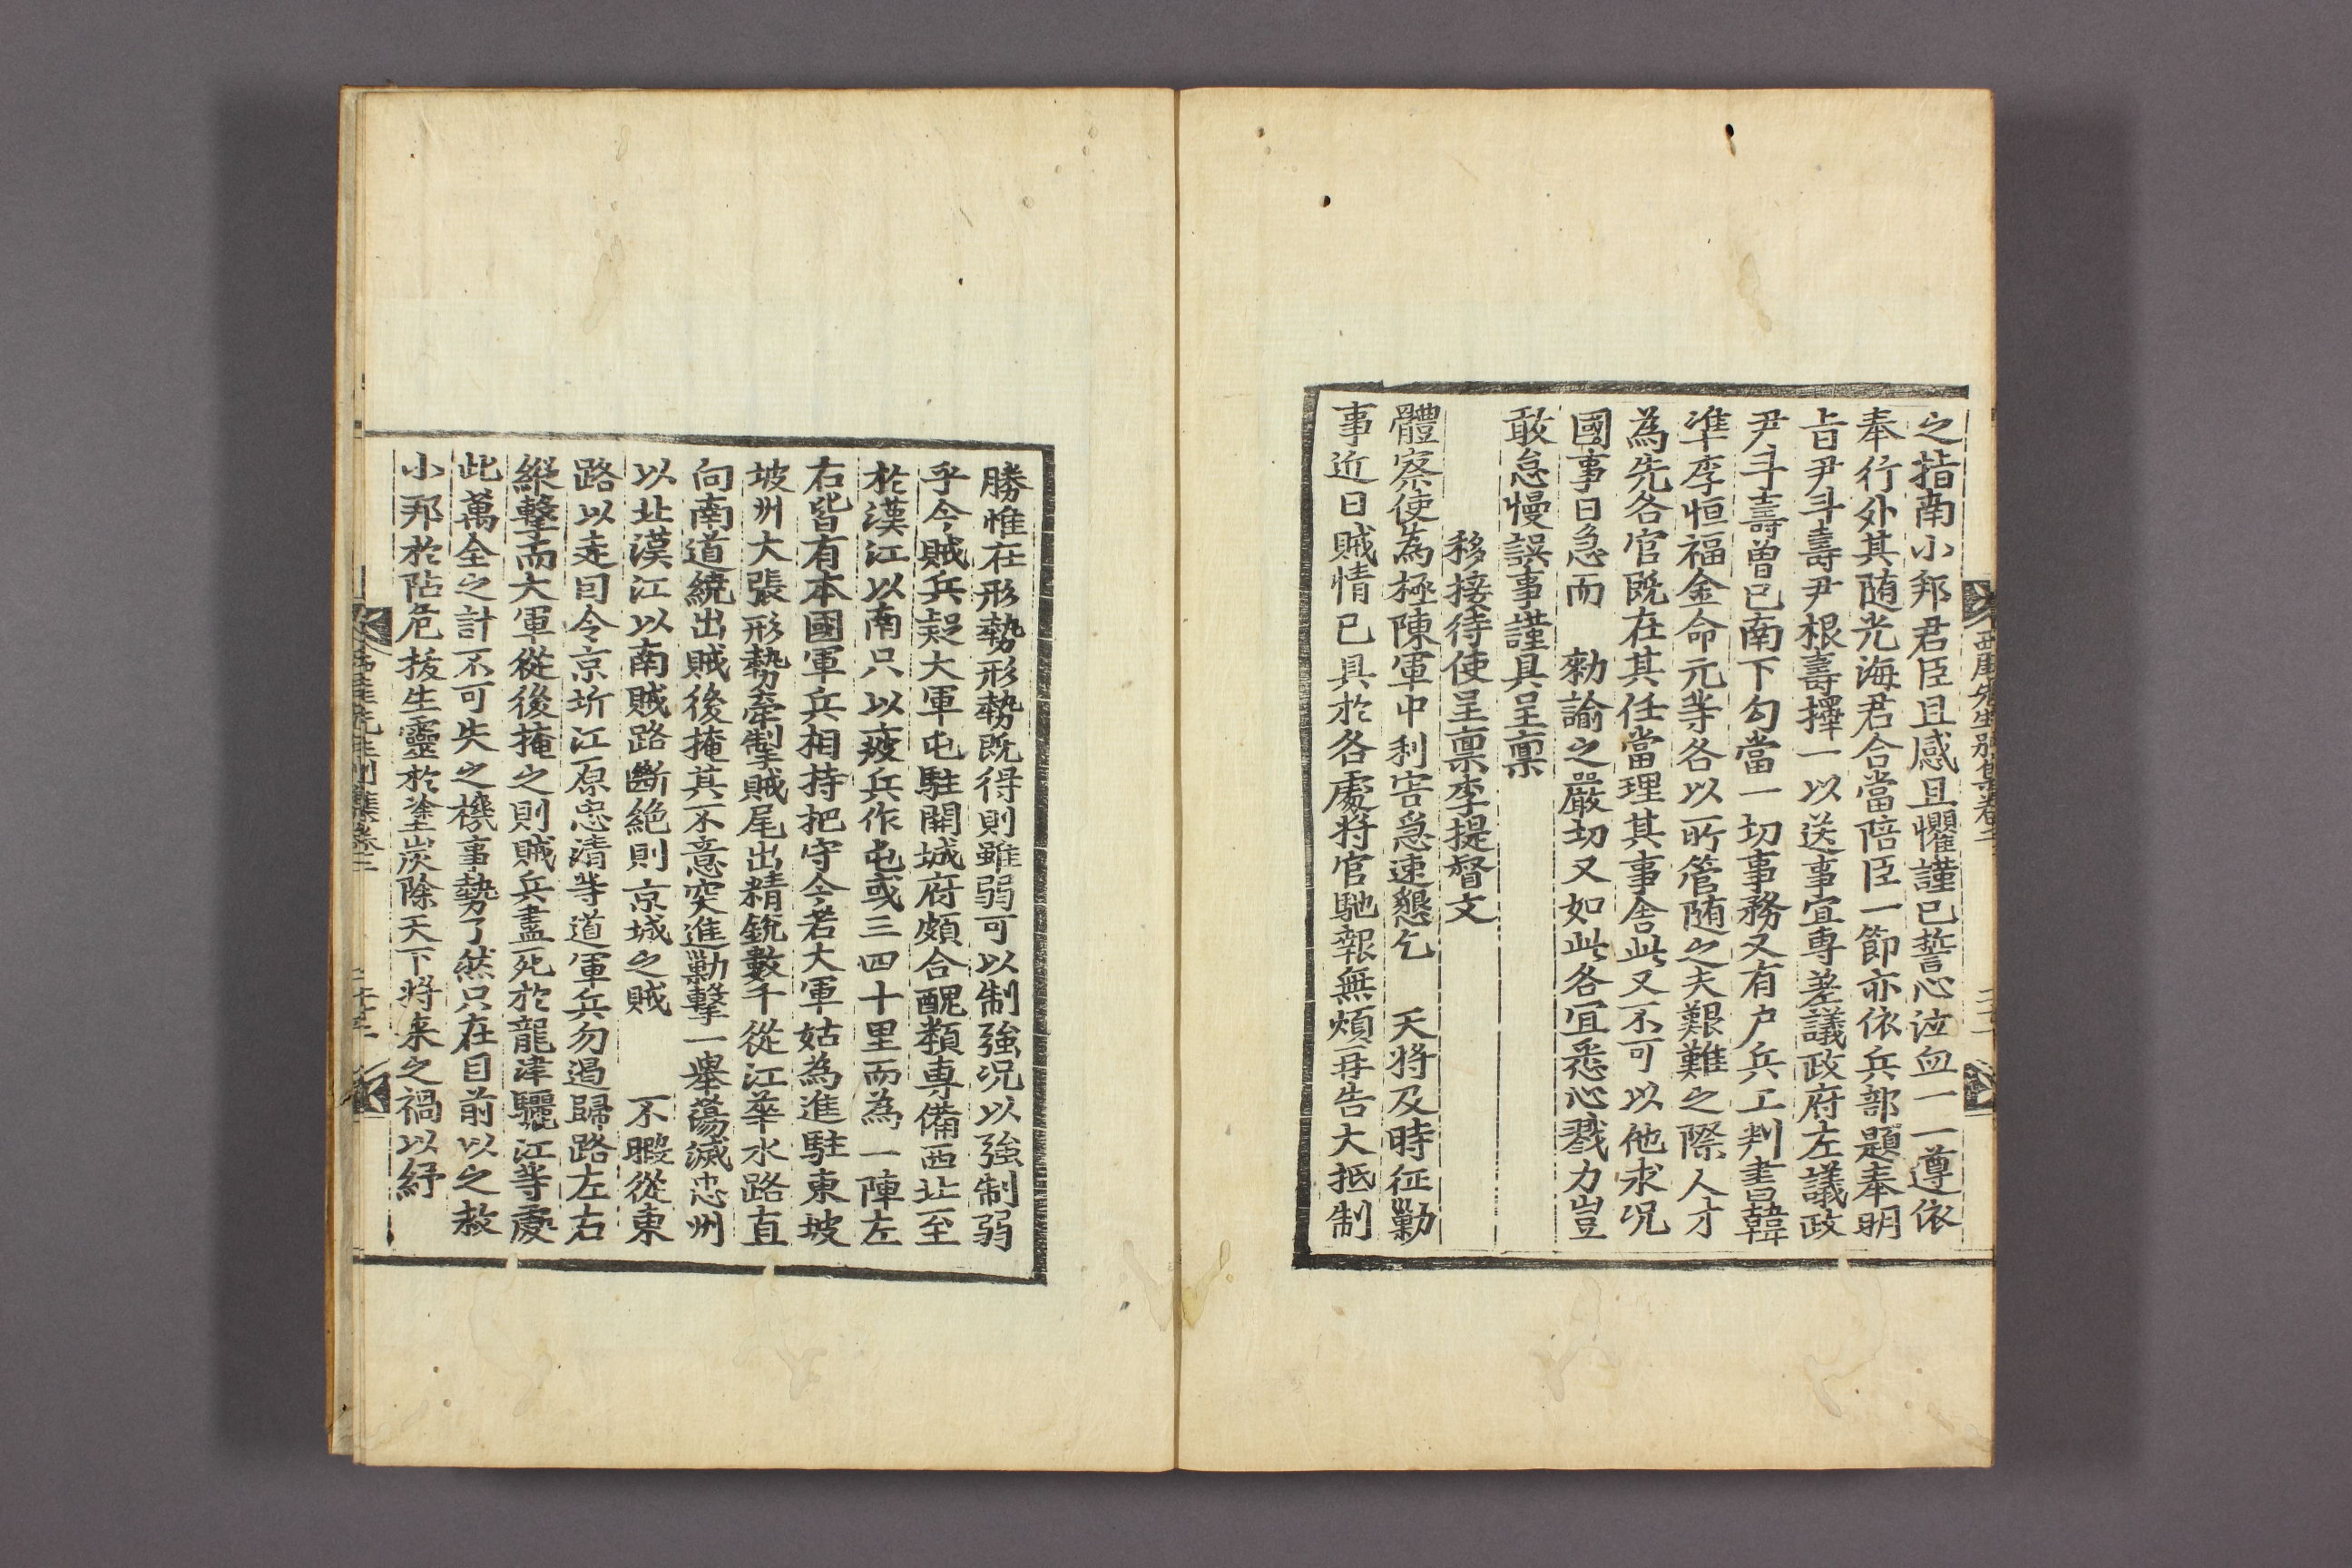 之指南小邦君臣且感且懼謹已誓心泣血一一遵依
奉行外其随光海君合當陪臣一節亦依兵部題奉明
旨尹斗壽尹根壽擇一以送事宜專差議政府左議政
尹斗壽曾已南下勾當一切事務又有户兵工判書韓
準李恒福金命元等各以所管随之夫艱難之際人才
為先各官既在其任當理其事舍此又不可以他求况
國事日急而 勑諭之嚴切又如此各宜悉心戮力豈
敢怠慢誤事謹具呈稟
移接待使呈稟李提督文
體察使為極陳軍中利害急速懇乞 天將及時征勦
事近日賊情已具於各處將官馳報無煩再告大抵制
西厓先生別集卷二
勝惟在形勢形勢既得則雖弱可以制強况以強制弱
乎今賊兵疑大軍屯駐開城府頗合醜類專備西北至
於漢江以南只以疲兵作屯或三四十里而為一陣左
右皆有本國軍兵相持把守今若大軍姑為進駐東坡
坡州大張形勢牽掣賊尾出精銳數千從江華水路直
向南道繞出賊後掩其不意突進勦擊一舉蕩滅忠州
以北漢江以南賊路斷絶則京城之賊 不暇從東
路以走目今京圻江原忠清等道軍兵勿遏歸路左右
縱擊而大軍從後掩之則賊兵盡死於龍津驪江等處
此萬全之計不可失之機事勢了然只在目前以之救
小邦於阽危拔生靈於塗炭除天下將来之禍以紓